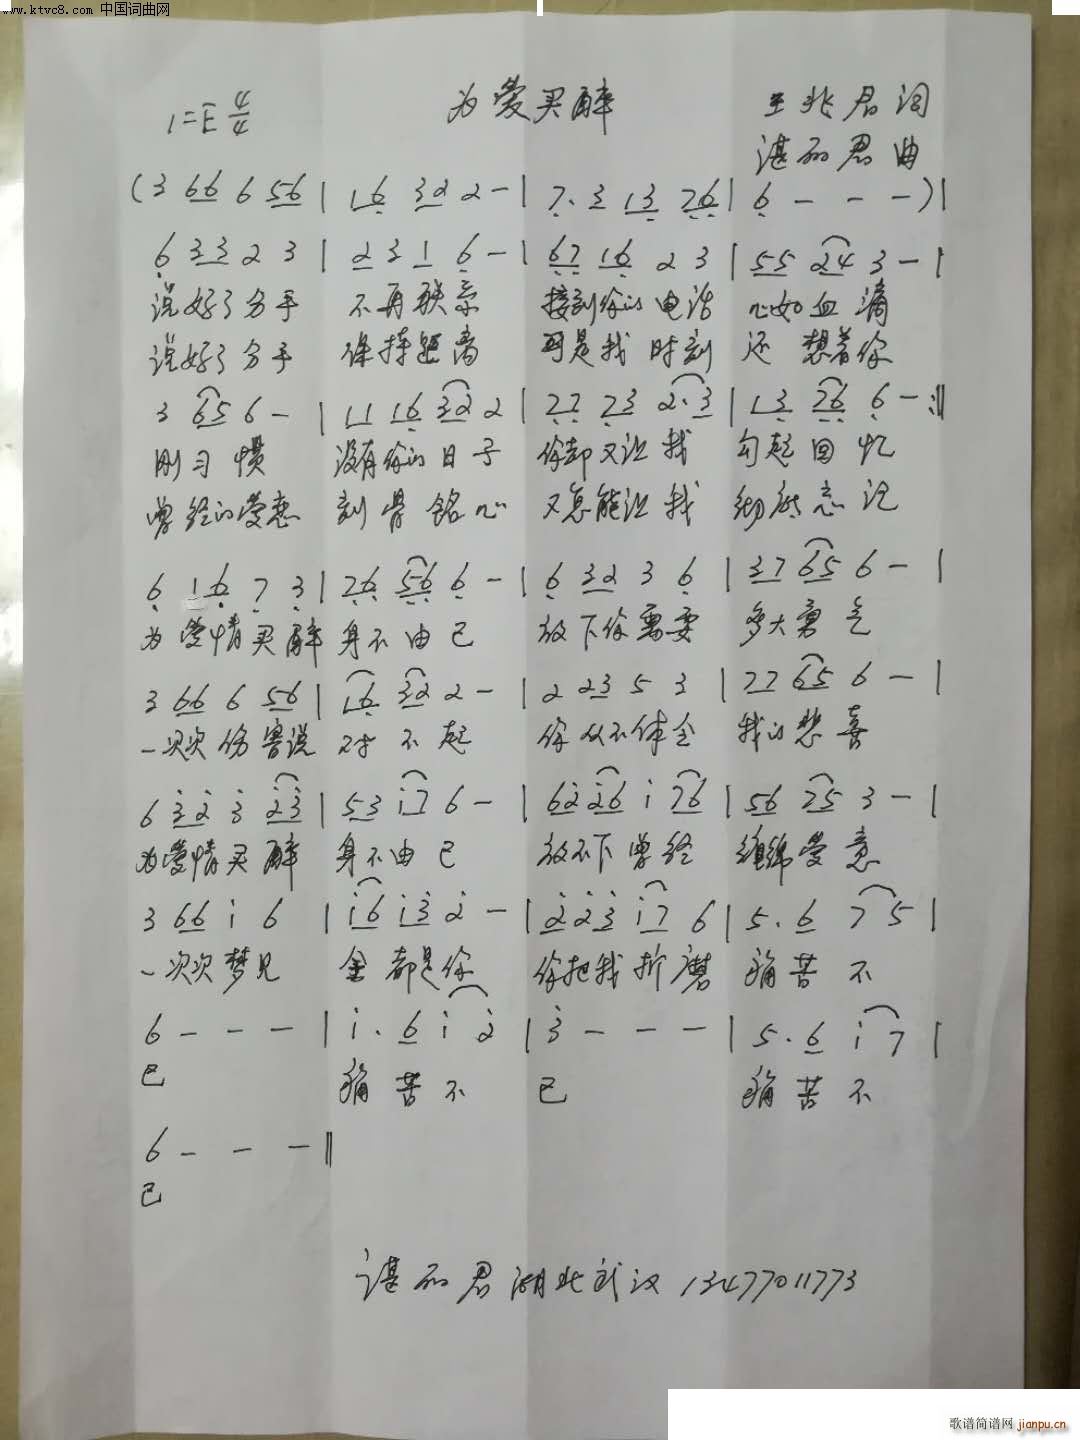 www.ktvc8.com 中国词曲网
1=E 4/4 为爱买醉 王兆君词
谌丽君曲
(3 66 6 56 | 16 32 2 - | 7. 3 13 76 | 6 - - - ) |
6 33 2 3 | 2 3 1 6 - | 67 16 2 3 | 55 24 3 - |
说好了分手 不再联系 接到你的电话 心如血滴
说好了分手 保持距离 可是我时刻 还想着你
3 65 6 - | 11 16 32 2 | 77 73 2.3 | 13 76 6 - :‖
刚习惯 没有你的日子 你却又让我 勾起回忆
曾经的爱恋 刻骨铭心 又怎能让我 彻底忘记
6 16 7 3 | 76 56 6 - | 6 32 3 6 | 37 65 6 - |
为爱情买醉 身不由己 放下你需要 多大勇气
3 66 6 56 | 16 32 2 - | 2 23 5 3 | 77 65 6 - |
一次次伤害说 对不起 你从不体会 我的悲喜
6 3̇2̇ 3̇ 2̇3̇ | 53 i7 6 - | 62̇ 2̇6 i 76 | 56 75 3 - |
为爱情买醉 身不由己 放不下曾经 缠绵爱意
3 66 i 6 | i6 i3̇ 2̇ - | 2̇ 2̇3̇ i7 6 | 5. 6 7 5 |
一次次梦见 全都是你 你把我折磨 痛苦不
6 - - - | i. 6 i 2̇ | 3̇ - - - | 5. 6 i 7 |
已 痛苦不 已 痛苦不
6 - - - ‖
已
谌丽君湖北武汉 13477011773
歌谱简谱网 jianpu.cn